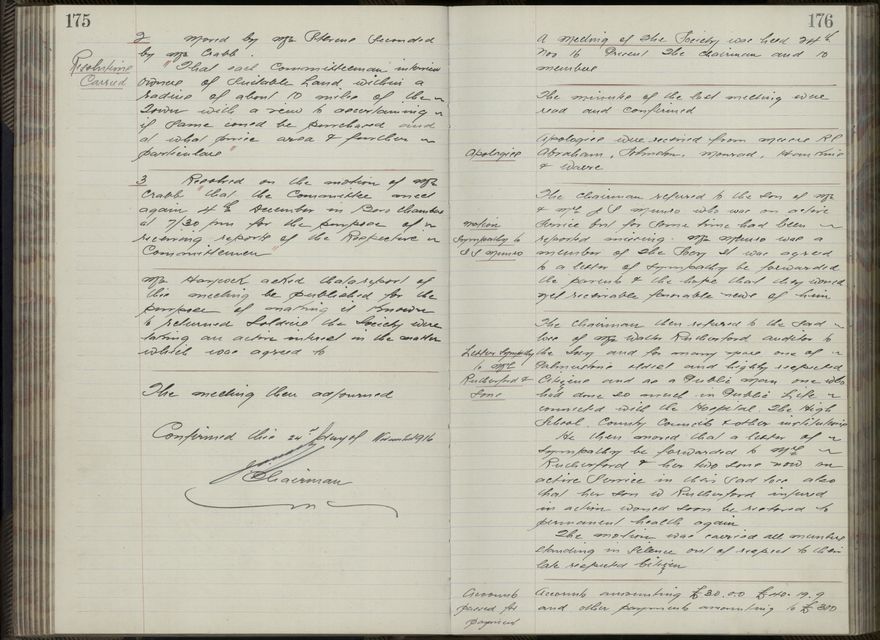 175
2 Moved by Mr Stevens Seconded
by Mr Crabb
Resolutions
Carried
"That each Committeeman interview
owners of Suitable Land within a
radius of about 10 miles of the
Town with a view to ascertaining
if same could be purchased and
at what price area & further
particulars"
3 Resolved on the motion of Mr
Crabb "that the Committee meet
again 4th December in Boro Chambers
at 7/30 pm for the purpose of
receiving reports of the Respective
Committeemen"
Mr Hancock asked that a report of
this meeting be published for the
purpose of making it known
to returned Soldiers the Society were
taking an active interest in the matter
which was agreed to
The meeting then adjourned
Confirmed this 24th day of November 1916
Chairman
176
A meeting of the Society was held 24th
Nov 16 Present The Chairman and 10
members
The minutes of the last meeting were
read and confirmed
Apologies
Apologies were received from Messrs
Abraham, Johnston, Monrad,
&
The Chairman referred to the Son of Mr
& Mrs J S Munro who was on active
Service but for some time had been
motion
Sympathy to
J S Munro
reported missing. Mr Munro was a
member of the Socy It was agreed
to a letter of sympathy be forwarded
the parents & the hope that they would
yet receivable favorable news of him
The Chairman then referred to the Sad
loss of Mr Walter Rutherford auditor to
the Socy and for many years one of
Letter Sympathy
to Mrs
Rutherford &
Sons
Palmerstons oldest and highly respected
Citizens and as a Public man one who
had done so much in Public Life
connected with the Hospital, The High
School, County Councils & other institutions
He then moved that a letter of
Sympathy be forwarded to Mrs
Rutherford & her two sons now on
active Service in their sad loss also
that her son W Rutherford injured
in action would soon be restored to
permanent health again
The motion was carried all members
standing in silence out of respect to their
late respected Citizen
Accounts
passed for
payment
Accounts amounting £30.0.0 £40.19.9
and other payments amounting to £300